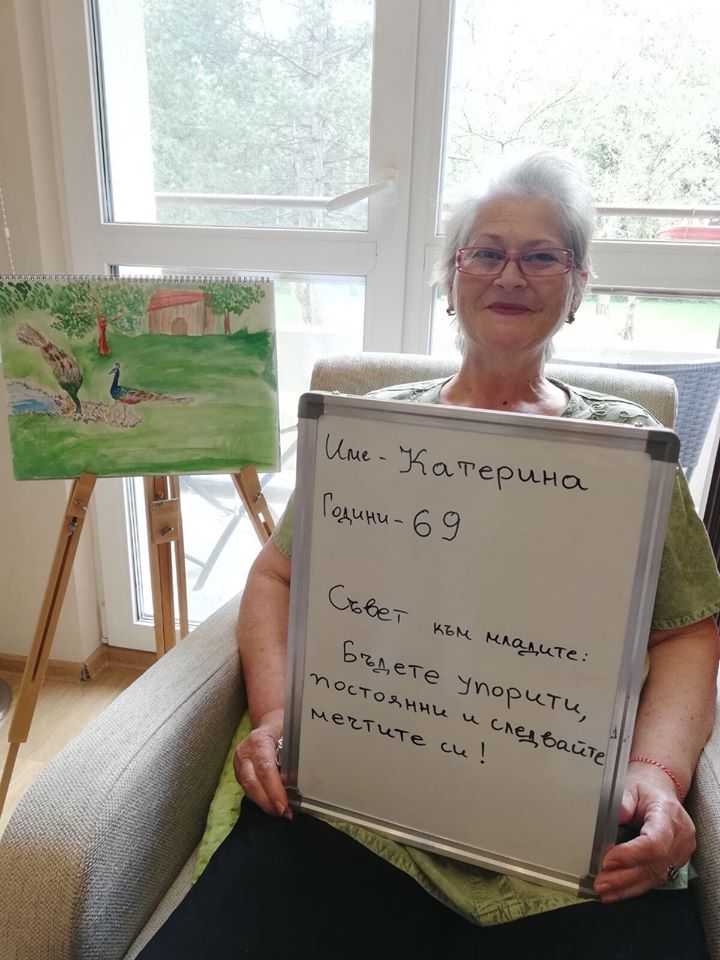 Име - Катерина
Години - 69
Съвет към младите:
Бъдете упорити,
постоянни и следвайте
мечтите си!